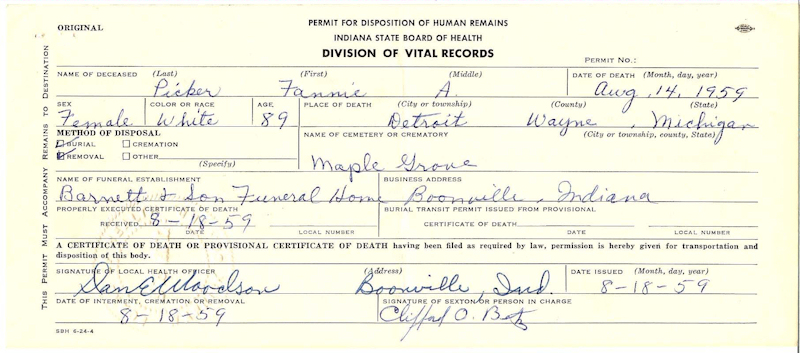 ORIGINAL
PERMIT FOR DISPOSITION OF HUMAN REMAINS
INDIANA STATE BOARD OF HEALTH
DIVISION OF VITAL RECORDS
PERMIT NO.:
THIS PERMIT MUST ACCOMPANY REMAINS TO DESTINATION
NAME OF DECEASED (Last) (First) (Middle) DATE OF DEATH (Month, day, year)
Picker Fannie A. Aug. 14, 1959
SEX COLOR OR RACE AGE PLACE OF DEATH (City or township) (County) (State)
Female White 89 Detroit Wayne, Michigan
METHOD OF DISPOSAL NAME OF CEMETERY OR CREMATORY (City or township, county, State)
BURIAL CREMATION
REMOVAL OTHER
(Specify)
Maple Grove
NAME OF FUNERAL ESTABLISHMENT BUSINESS ADDRESS
Barnett & Son Funeral Home Boonville, Indiana
PROPERLY EXECUTED CERTIFICATE OF DEATH BURIAL TRANSIT PERMIT ISSUED FROM PROVISIONAL
RECEIVED 8-18-59 CERTIFICATE OF DEATH
DATE LOCAL NUMBER DATE LOCAL NUMBER
A CERTIFICATE OF DEATH OR PROVISIONAL CERTIFICATE OF DEATH having been filed as required by law, permission is hereby given for transportation and
disposition of this body.
SIGNATURE OF LOCAL HEALTH OFFICER (Address) DATE ISSUED (Month, day, year)
Sam E Woodson Boonville, Ind. 8-18-59
DATE OF INTERMENT, CREMATION OR REMOVAL SIGNATURE OF SEXTON OR PERSON IN CHARGE
8-18-59 Clifford O.
SBH 6-24-4